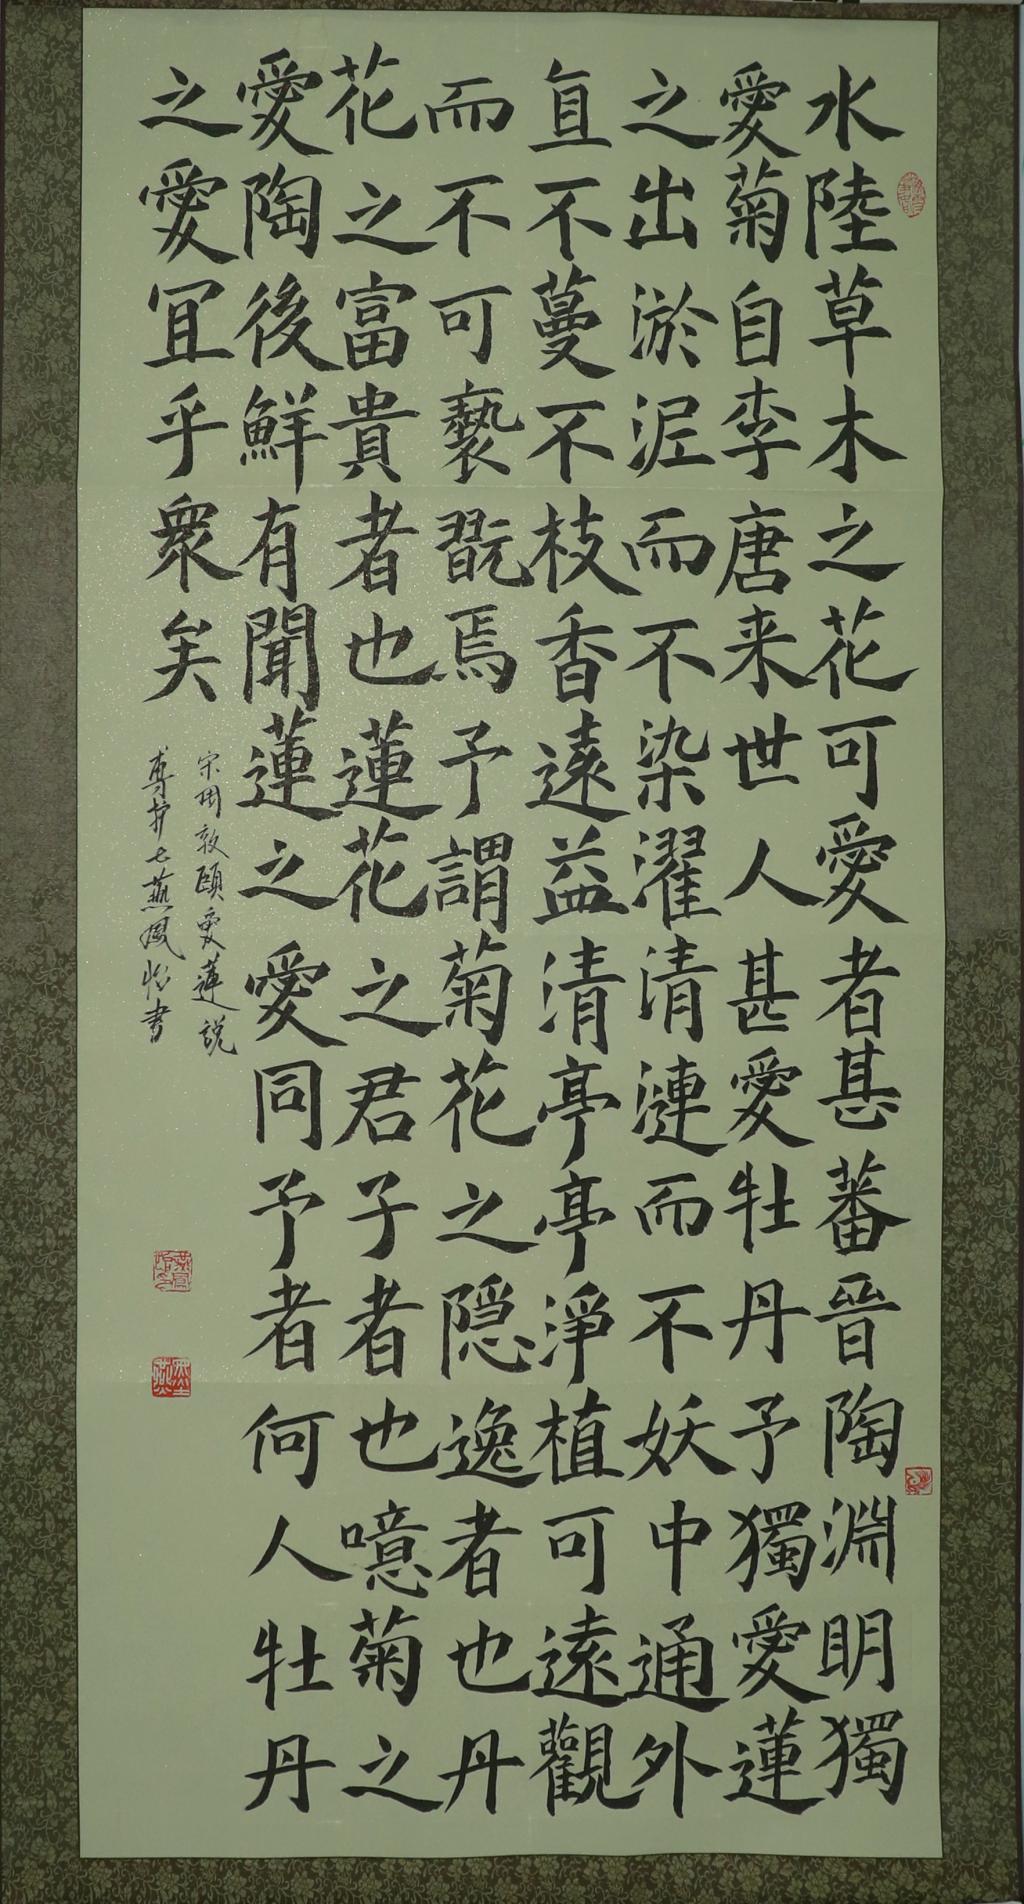 水陸草木之花可愛者甚蕃晉陶淵明獨
愛菊自李唐来世人甚愛牡丹予獨愛蓮
之出淤泥而不染濯清漣而不妖中通外
直不蔓不枝香遠益清亭亭淨植可遠觀
而不可褻翫焉予謂菊花之隠逸者也丹
花之富貴者也蓮花之君子者也噫菊之
愛陶後鮮有聞蓮之愛同予者何人牡丹
之愛宜乎衆矣
宋周敦頤愛蓮説
燕鳳怡書